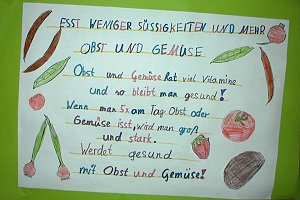 ESST WENIGER SÜSSIGKEITEN UND MEHR
OBST UND GEMÜSE
Obst und Gemüse hat viel Vitamine
und so bleibt man gesund!
Wenn man 5x am Tag Obst oder
Gemüse isst, wird man groß
und stark.
Werdet gesund
mit Obst und Gemüse!